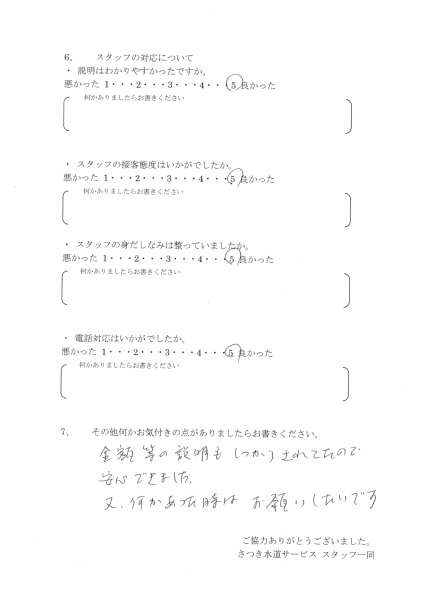 6、 スタッフの対応について
・ 説明はわかりやすかったですか。
悪かった 1・・・2・・・3・・・4・・・5 良かった
何かありましたらお書きください
・ スタッフの接客態度はいかがでしたか。
悪かった 1・・・2・・・3・・・4・・・5 良かった
何かありましたらお書きください
・ スタッフの身だしなみは整っていましたか。
悪かった 1・・・2・・・3・・・4・・・5 良かった
何かありましたらお書きください
・ 電話対応はいかがでしたか。
悪かった 1・・・2・・・3・・・4・・・5 良かった
何かありましたらお書きください
7、 その他何かお気付きの点がありましたらお書きください。
金額等の説明もしっかりされてたので
安心できました。
又、何かあった時はお願いしたいです
ご協力ありがとうございました。
さつき水道サービス スタッフ一同